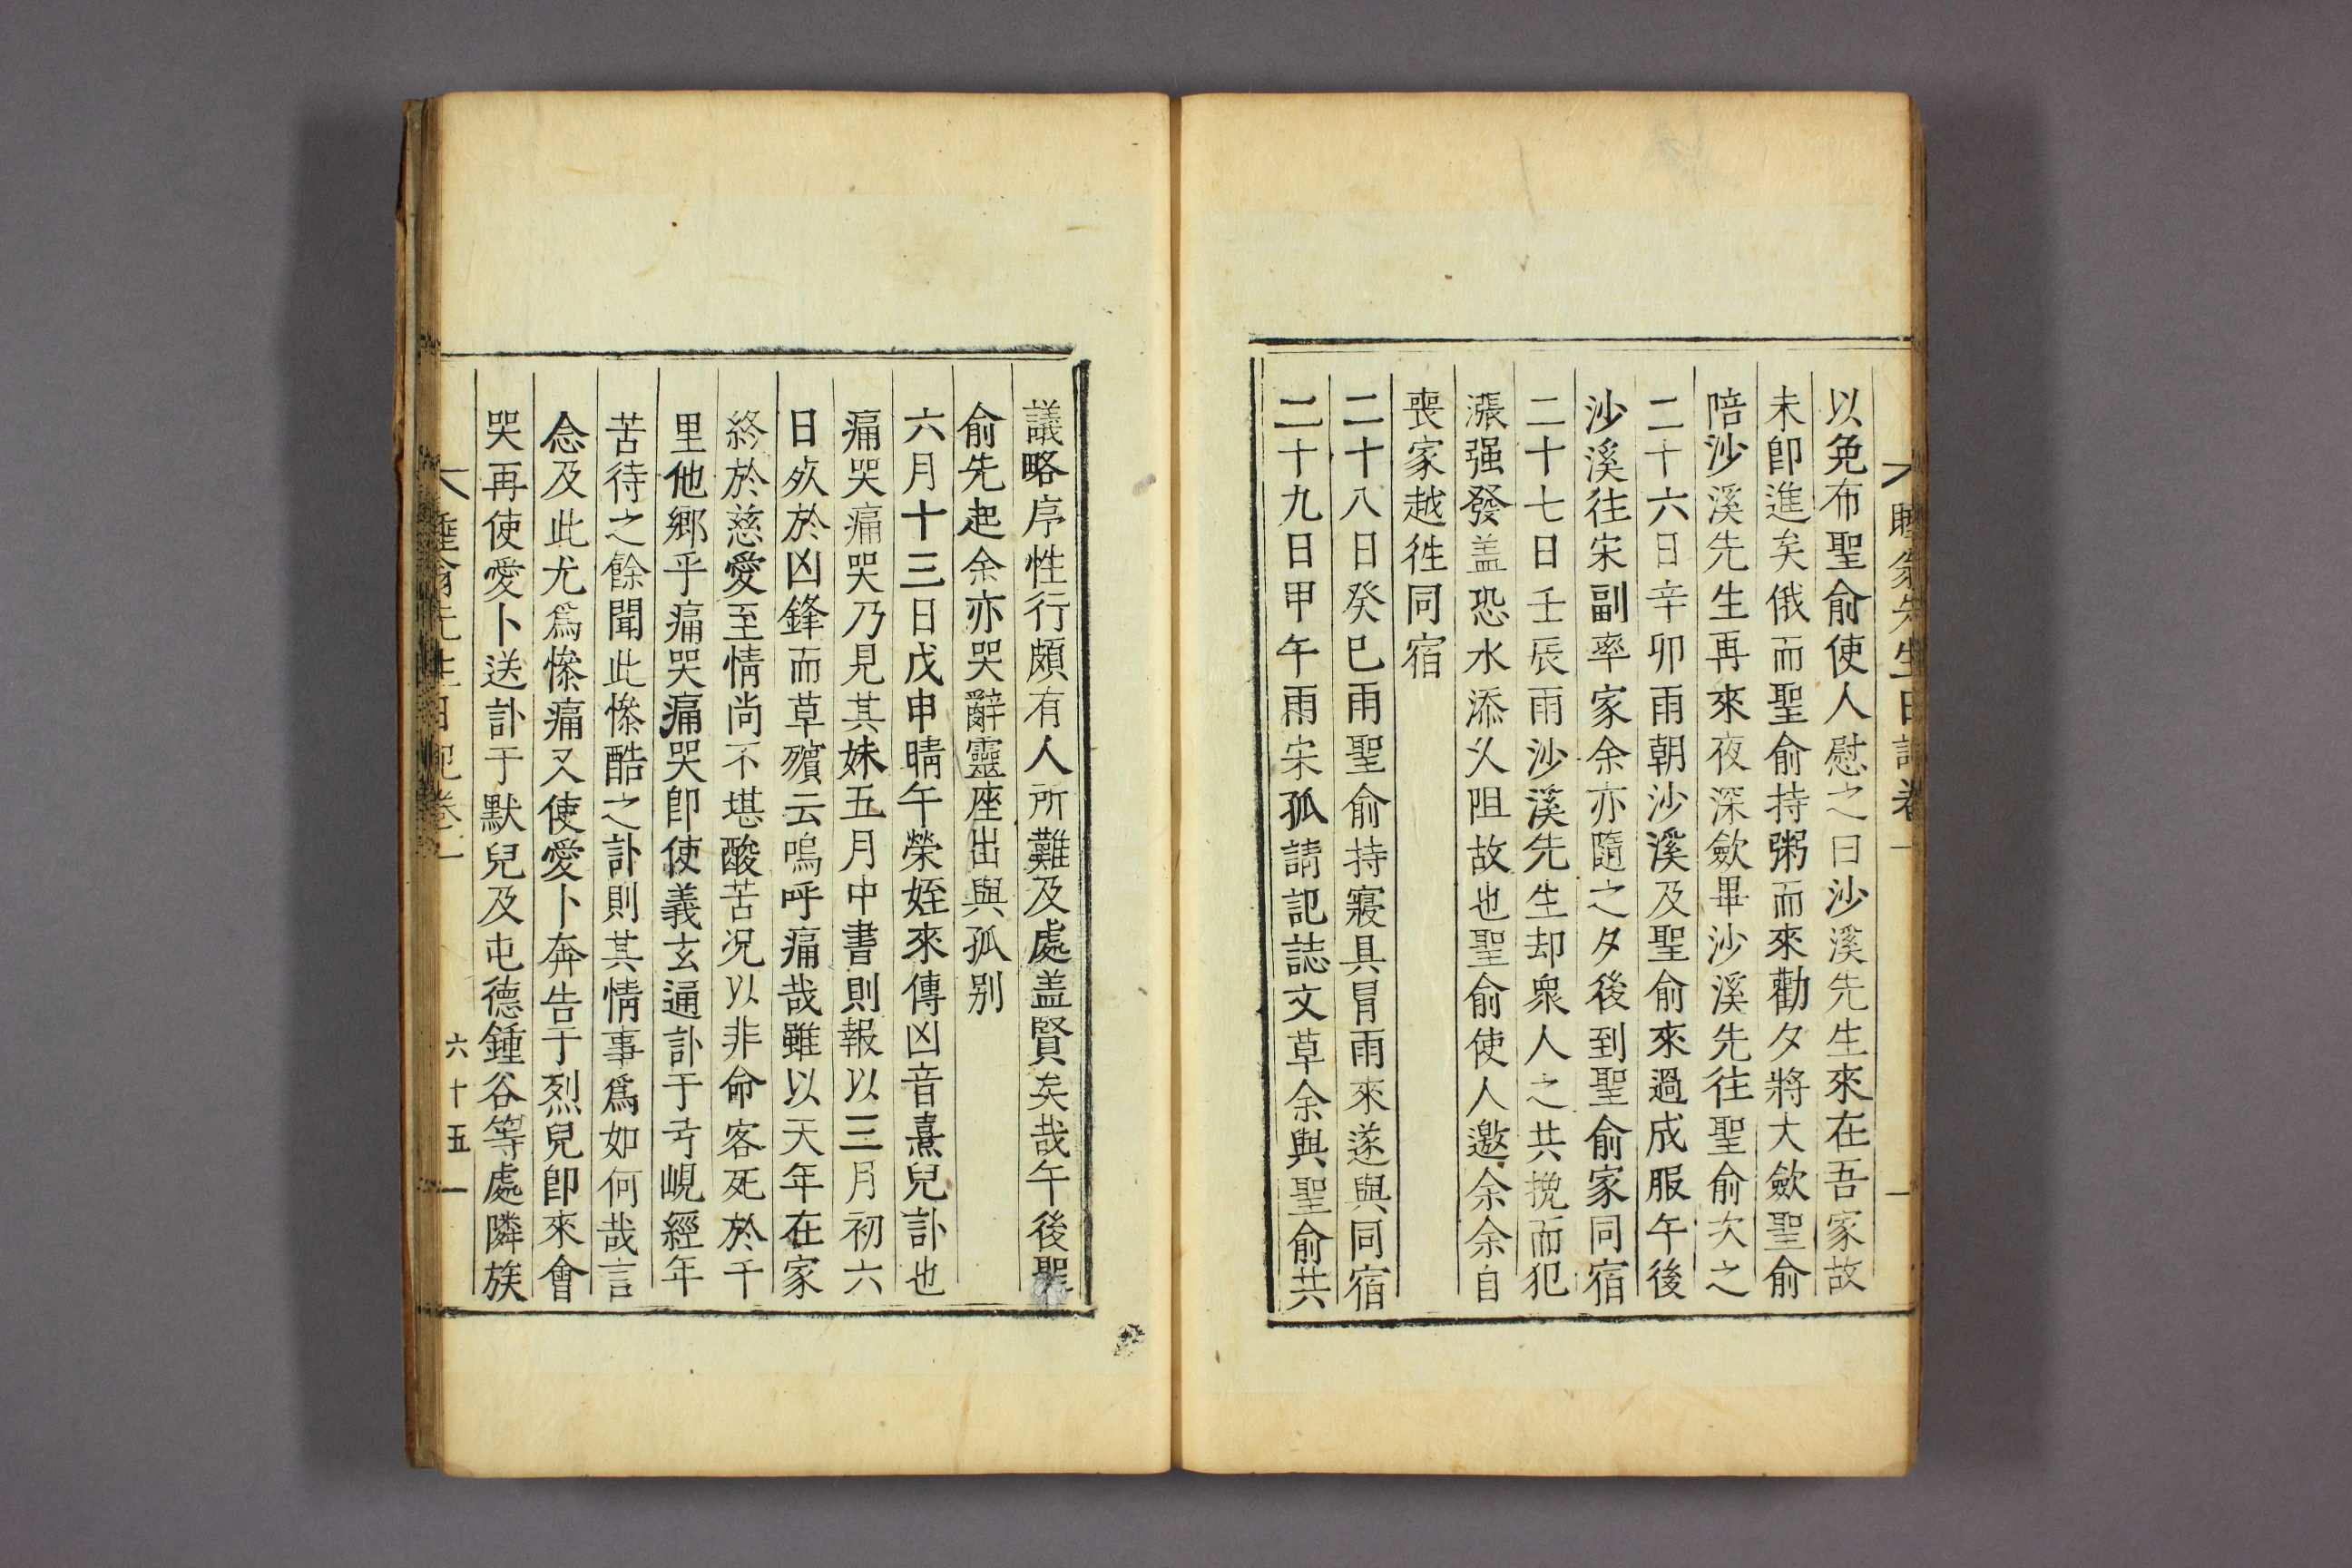 睡翁先生日記卷一
以免布聖俞使人慰之曰沙溪先生來在吾家故
未卽進矣俄而聖俞持粥而來勸夕將大斂聖俞
陪沙溪先生再來夜深斂畢沙溪先往聖俞次之
二十六日辛卯雨朝沙溪及聖俞來過成服午後
沙溪往宋副率家余亦隨之夕後到聖俞家同宿
二十七日壬辰雨沙溪先生却衆人之共挽而犯
漲强發盖恐水添乆阻故也聖俞使人邀余余自
喪家越徃同宿
二十八日癸巳雨聖俞持寢具冒雨來遂與同宿
二十九日甲午雨宋孤請記誌文草余與聖俞共
議略序性行頗有人所難及處盖賢矣哉午後聖
俞先起余亦哭辭靈座出與孤别
六月十三日戊申晴午榮姪來傳凶音熹兒訃也
痛哭痛哭乃見其妹五月中書則報以三月初六
日歿於凶鋒而草殯云嗚呼痛哉雖以天年在家
終於慈愛至情尚不堪酸苦况以非命客死於千
里他鄕乎痛哭痛哭卽使義玄通訃于亏峴經年
苦待之餘聞此慘酷之訃則其情事爲如何哉言
念及此尤爲慘痛又使愛卜奔告于烈兒卽來會
哭再使愛卜送訃于默兒及屯德鍾谷等處隣族
睡翁先生日記卷一
六十五